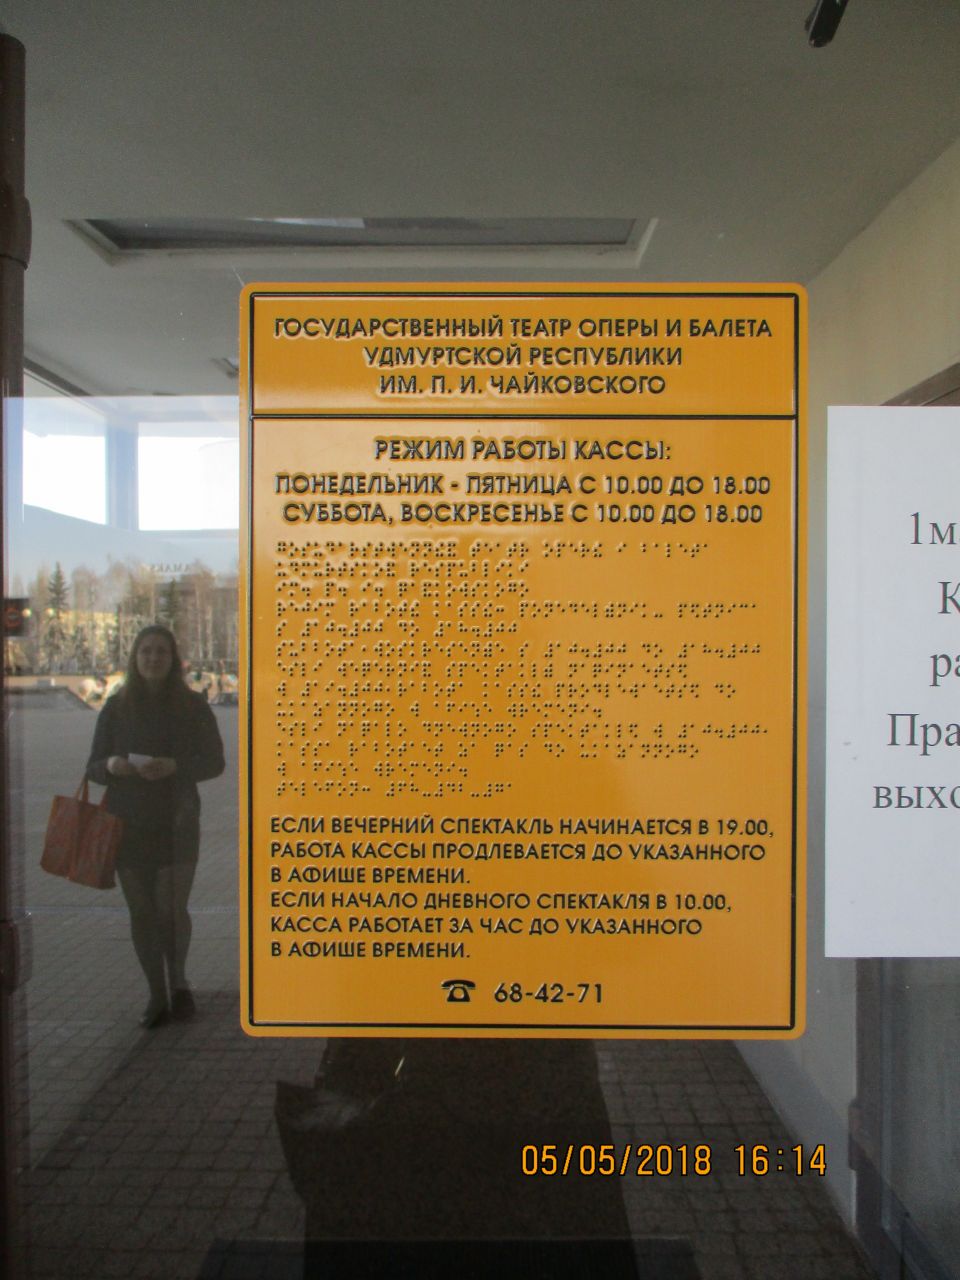 ГОСУДАРСТВЕННЫЙ ТЕАТР ОПЕРЫ И БАЛЕТА
УДМУРТСКОЙ РЕСПУБЛИКИ
ИМ. П. И. ЧАЙКОВСКОГО
РЕЖИМ РАБОТЫ КАССЫ:
ПОНЕДЕЛЬНИК - ПЯТНИЦА С 10.00 ДО 18.00
СУББОТА, ВОСКРЕСЕНЬЕ С 10.00 ДО 18.00
ЕСЛИ ВЕЧЕРНИЙ СПЕКТАКЛЬ НАЧИНАЕТСЯ В 19.00,
РАБОТА КАССЫ ПРОДЛЕВАЕТСЯ ДО УКАЗАННОГО
В АФИШЕ ВРЕМЕНИ.
ЕСЛИ НАЧАЛО ДНЕВНОГО СПЕКТАКЛЯ В 10.00,
КАССА РАБОТАЕТ ЗА ЧАС ДО УКАЗАННОГО
В АФИШЕ ВРЕМЕНИ.
☎ 68-42-71
1м
К
ра
Пра
выхо
05/05/2018 16:14